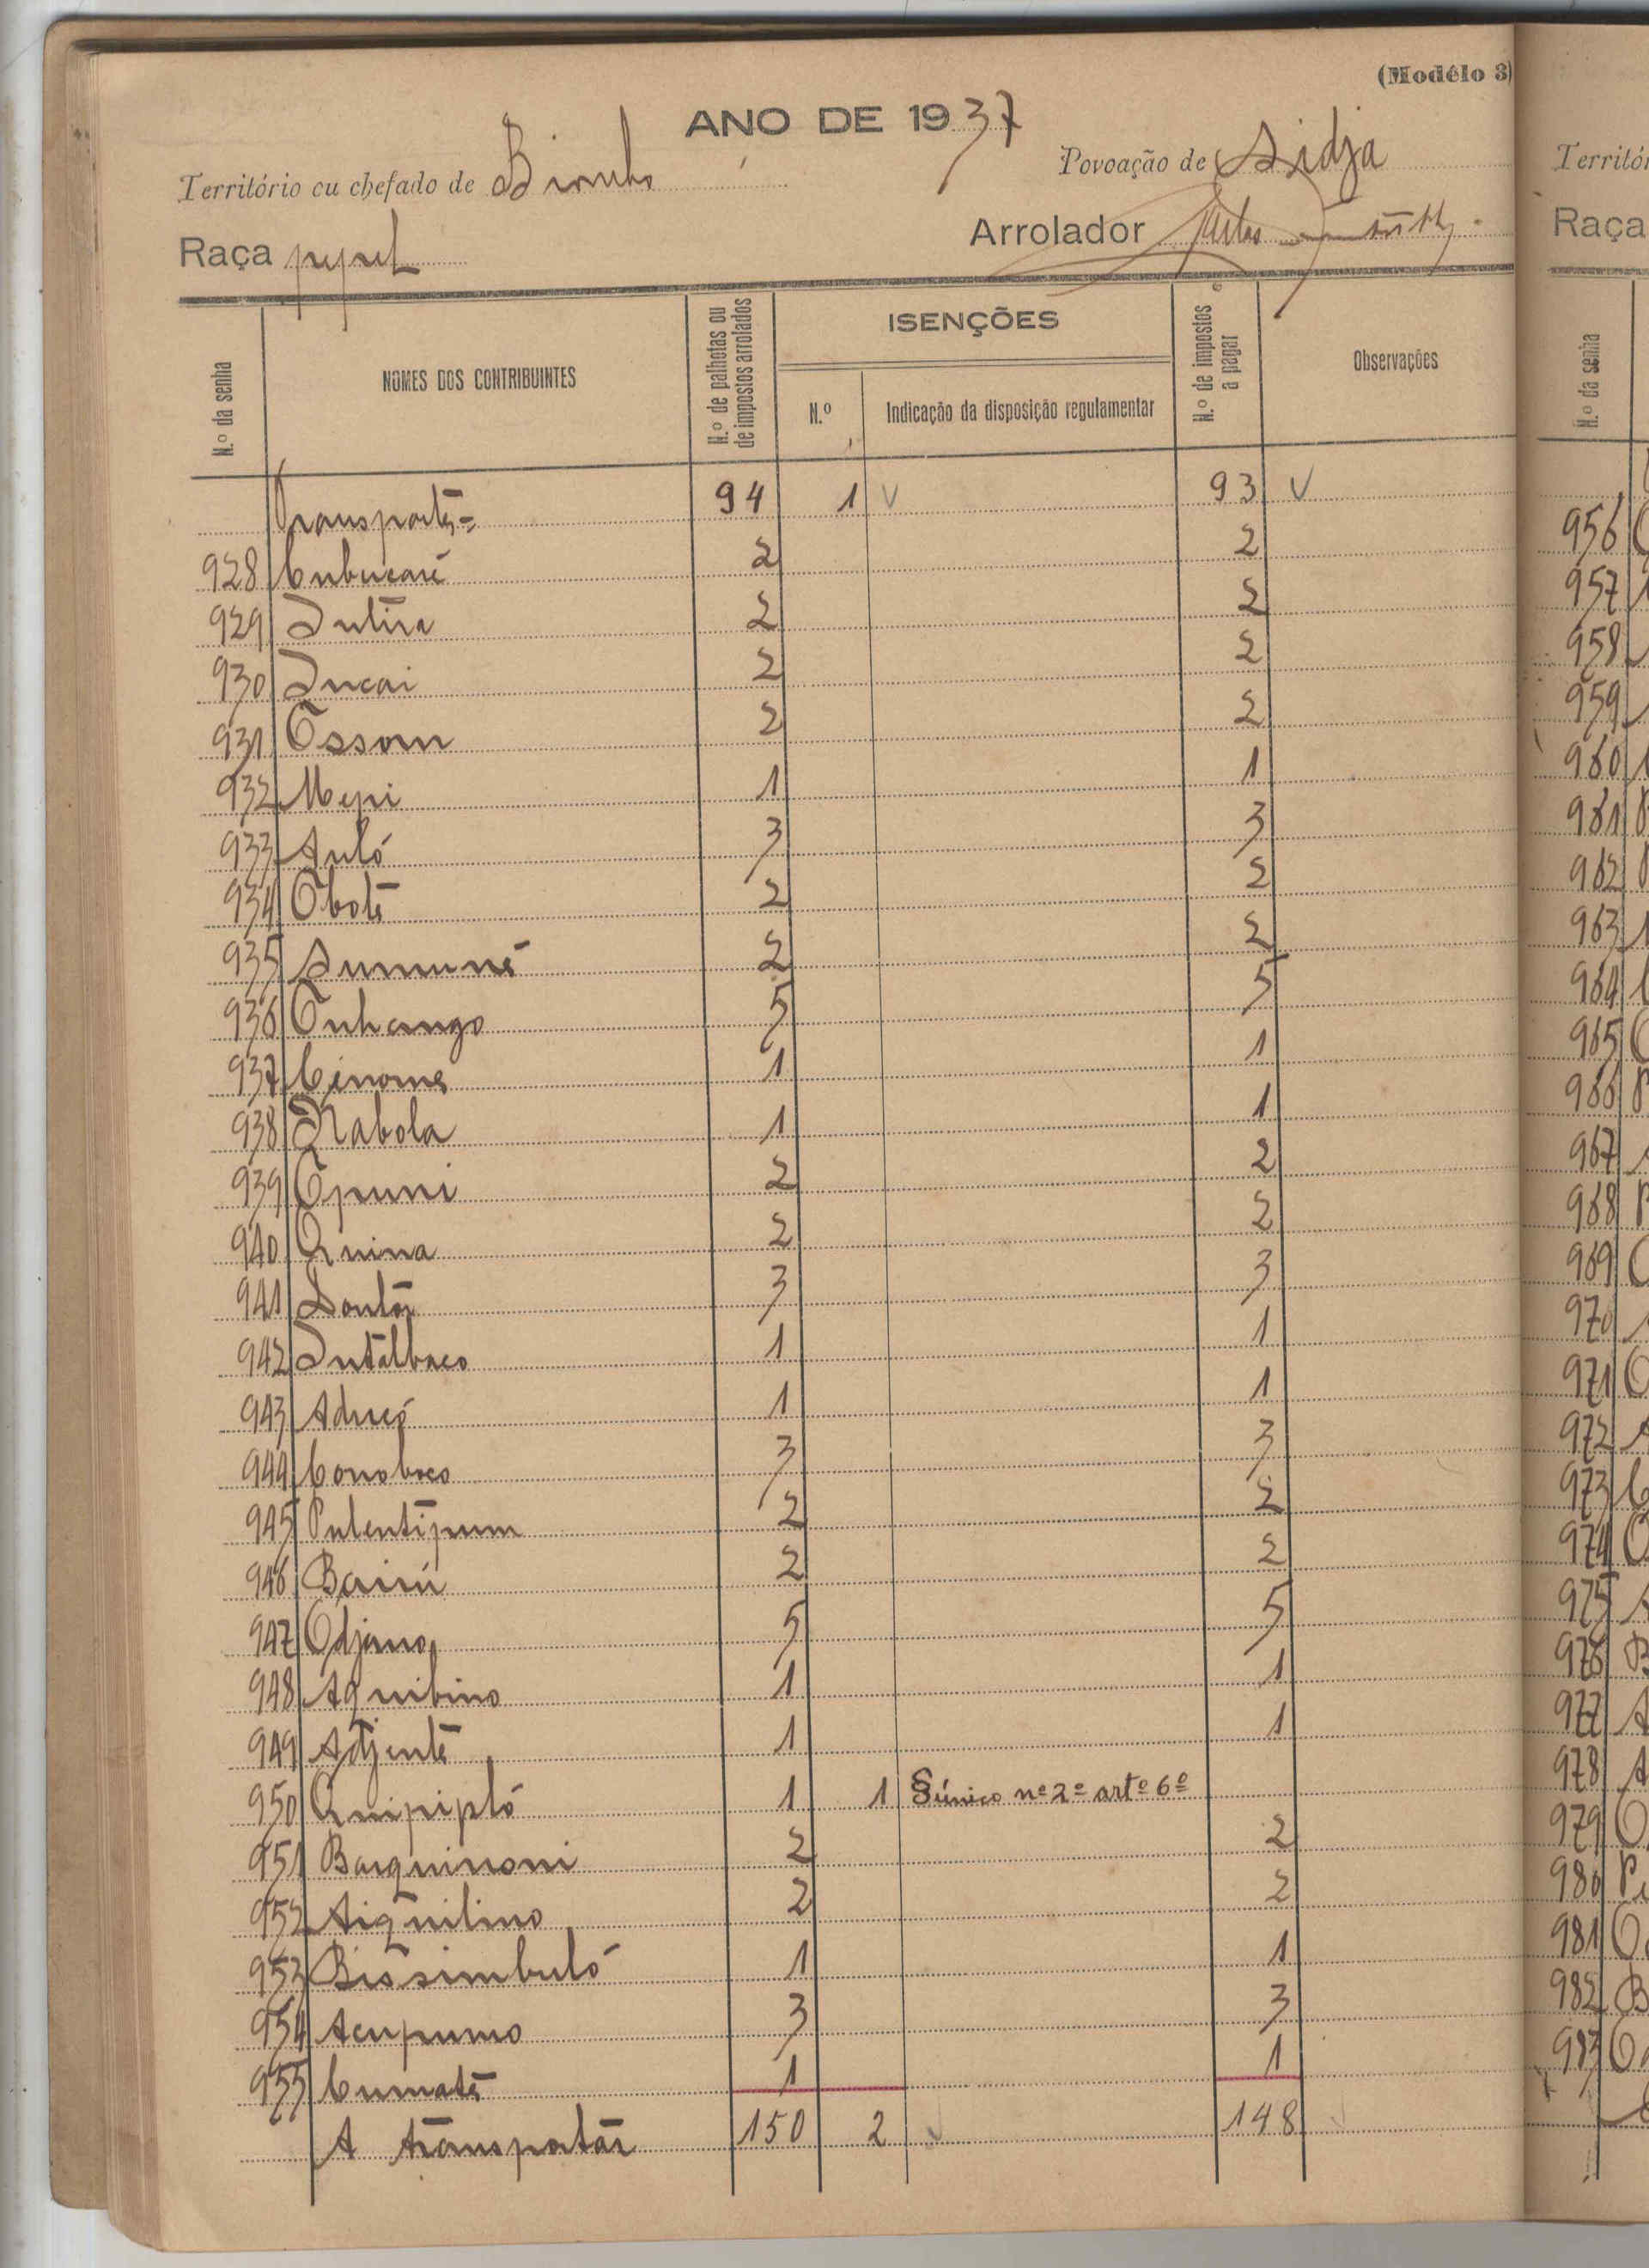 (Modêlo 3)
ANO DE 1937
Território ou chefado de Biombo Povoação de Sidja
Raça papel Arrolador
N.º da senha NOMES DOS CONTRIBUINTES N.º de palhotas ou de impostos arrolados ISENÇÕES N.º Indicação da disposição regulamentar N.º de impostos a pagar Observações
Transporte= 94 1 V 93 V
928 Cubucaré 2 2
929 Intira 2 2
930 Incai 2 2
931 Ossom 2 2
932 Mepi 1 1
933 Auló 3 3
934 Oboté 2 2
935 Sumuné 2 2
936 Onhango 5 5
937 1 1
938 Nabola 1 1
939 Opuni 2 2
940 Quina 2 2
941 Doutor 3 3
942 Intalbaco 1 1
943 Aducó 1 1
944 Conoboco 3 3
945 Pulentipum 2 2
946 2 2
947 Odjano 5 5
948 Aquibino 1 1
949 Adjenté 1 1
950 Quipipló 1 1 § único nº 2º artº 6º
951 Barquinoni 2 2
952 Aiquilino 2 2
953 Bissimbuló 1 1
954 Acupumo 3 3
955 Cumaté 1 1
A transportar 150 2 148
Territó
Raça
N.º da senha
956
957
958
959
960
961
962
963
964
965
966
967
968
969
970
971
972
973
974
975
976
977
978
979
980
981
982
983